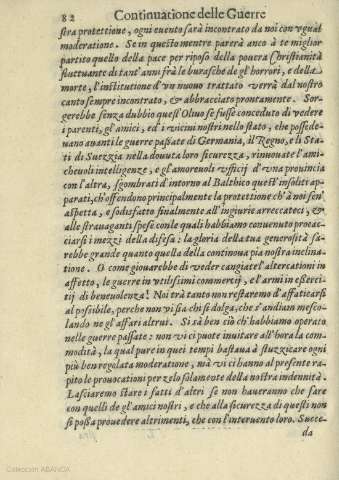 82 Continuatione delle Guerre
stra protettione, ogni euento sarà incontrato da noi con vgual
moderatione. Se in questo mentre parerà anco à te miglior
partito quello della pace per riposo della pouera Christianità
fluttuante di tant'anni frà le burasche de gl'horrori, e della
morte, l'institutione d'vn nuouo trattato verrà dal nostro
canto sempre incontrato, & abbracciato prontamente. Sor-
gerebbe senza dubbio quest'Oliuo se fusse conceduto di vedere
i parenti, gl'amici, ed i vicini nostri nello stato, che possede-
uano auanti le guerre passate di Germania, il Regno, e li Sta-
ti di Suezzia nella douuta loro sicurezza, rinouate l'ami-
cheuoli intelligenze, e gl'amoreuoli vfficij d'vna prouincia
con l'altra, sgombrati d'intorno al Balthico quest'insoliti ap-
parati, ch'offendono principalmente la protettione ch'à noi s'en'
aspetta, e sodisfatto finalmente all'ingiurie arrecateci, &
alle strauaganti spese con le quali habbiamo conuenuto procac-
ciarsi i mezzi della difesa: la gloria della tua generosità sa-
rebbe grande quanto quella della continoua pia nostra inclina-
tione. O come giouarebbe di veder cangiate l'altercationi in
affetto, le guerre in vtilissimi commertij, e l'armi in essercì-
tij di beneuolenza! Noi trà tanto non restaremo d'affaticarsi
al possibile, perche non vi sia chi si dolga, che s'andiam mesco-
lando ne gl'affari altrui. Si sà ben ciò ch'habbiamo operato
nelle guerre passate: non vi ci puote inuitare all'hora la com-
modità, la qual pure in quei tempi bastaua à stuzzicare ogni
più ben regolata moderatione, mà vi ci hanno al presente ra-
pito le prouocationi per zelo solamente della nostra indennità.
Lasciaremo stare i fatti d'altri se non haueranno che fare
con quelli de gl'amici nostri, e che alla sicurezza di questi non
si possa prouedere altrimenti, che con l'interuento loro. Succe-
da
Colección ABANCA